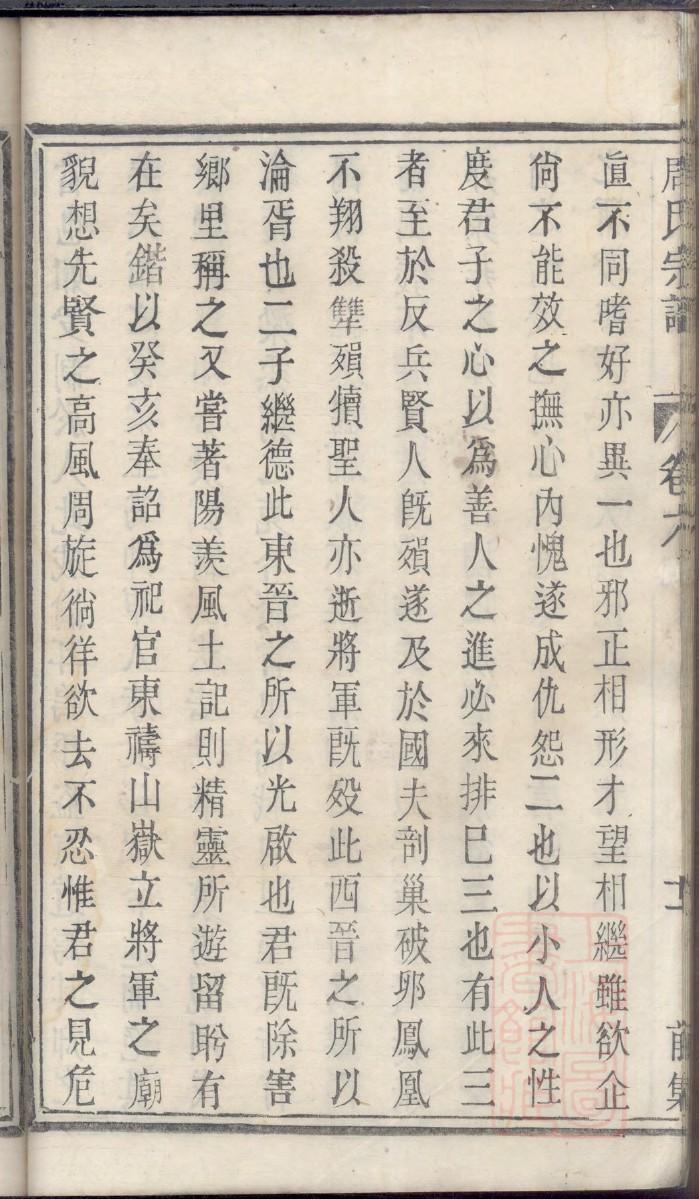 周氏宗譜 卷六 十一 前集
直不同嗜好亦異一也邪正相形才望相繼雖欲企
尙不能效之撫心內愧遂成仇怨二也以小人之性
度君子之心以爲善人之進必來排巳三也有此三
者至於反兵賢人旣殞遂及於國夫剖巢破卵鳳凰
不翔殺犨殞犢聖人亦逝將軍旣歿此西晉之所以
淪胥也二子繼德此東晉之所以光啟也君旣除害
鄉里稱之又嘗著陽羨風土記則精靈所遊留盻有
在矣鍇以癸亥奉詔爲祀官東禱山嶽立將軍之廟
貌想先賢之高風周旋徜徉欲去不忍惟君之見危